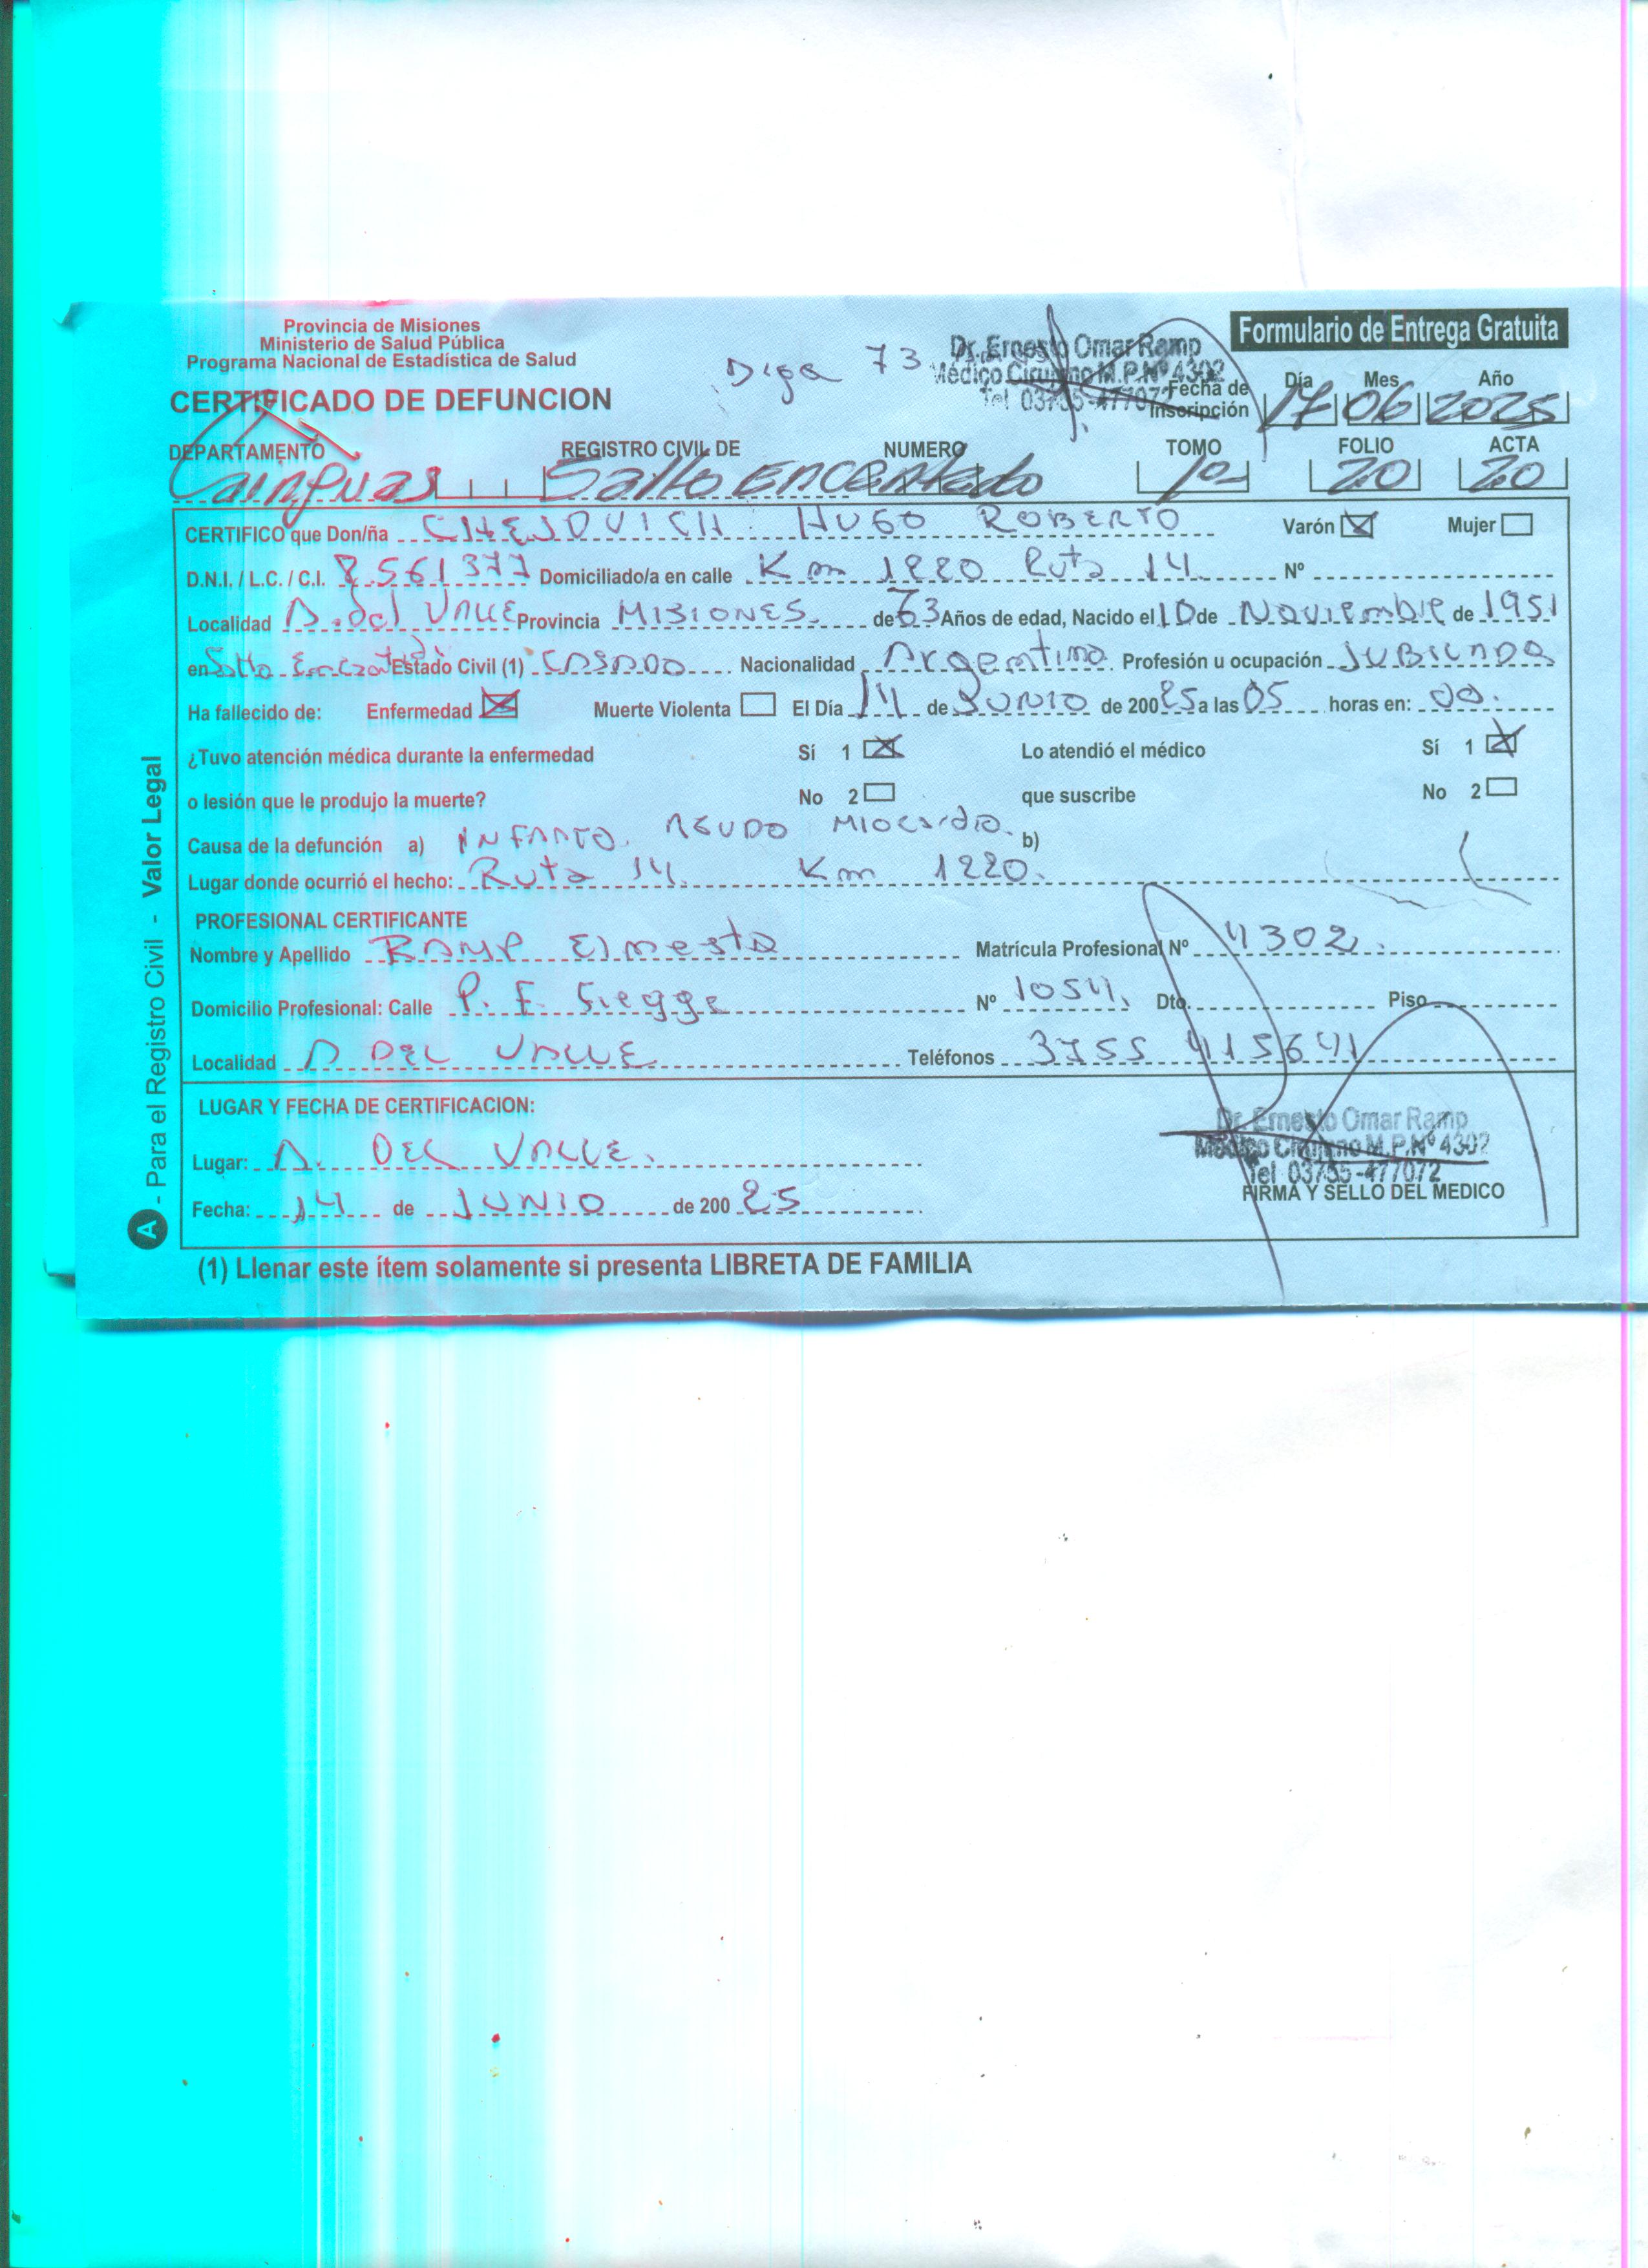 Provincia de Misiones
Ministerio de Salud Pública
Programa Nacional de Estadística de Salud
CERTIFICADO DE DEFUNCION
Formulario de Entrega Gratuita
Diga 73
Dr. Ernesto Omar Ramp
Médico Cirujano M.P.Nº 4302
Tel 03755-477072
Fecha de Inscripción Día 17 Mes 06 Año 2025
DEPARTAMENTO REGISTRO CIVIL DE NUMERO TOMO FOLIO ACTA
Cainguas Salto Encantado 1º 20 20
CERTIFICO que Don/ña CHEJOVICH HUGO ROBERTO Varón Mujer
D.N.I. / L.C. / C.I. 8561377 Domiciliado/a en calle Km 1220 Ruta 14. Nº
Localidad A. del VALLE Provincia MISIONES. de 73 Años de edad, Nacido el 10 de Noviembre de 1951
en Salto Encantado Estado Civil (1) CASADO Nacionalidad Argentino Profesión u ocupación JUBILADO
Ha fallecido de: Enfermedad Muerte Violenta El Día 14 de JUNIO de 200 25 a las 05 horas en: 00.
¿Tuvo atención médica durante la enfermedad Sí 1 Lo atendió el médico Sí 1
o lesión que le produjo la muerte? No 2 que suscribe No 2
Causa de la defunción a) INFARTO AGUDO MIOCARDIO. b)
Lugar donde ocurrió el hecho: Ruta 14. Km 1220.
PROFESIONAL CERTIFICANTE
Nombre y Apellido RAMP Ernesto Matrícula Profesional Nº 4302.
Domicilio Profesional: Calle P. F. Nº 1054. Dto. Piso
Localidad A DEL VALLE Teléfonos 3755 415641
LUGAR Y FECHA DE CERTIFICACION:
Lugar: A. DEL VALLE.
Fecha: 14 de JUNIO de 200 25
Dr. Ernesto Omar Ramp
Médico Cirujano M.P.Nº 4302
Tel 03755-477072
FIRMA Y SELLO DEL MEDICO
(1) Llenar este ítem solamente si presenta LIBRETA DE FAMILIA
A - Para el Registro Civil - Valor Legal